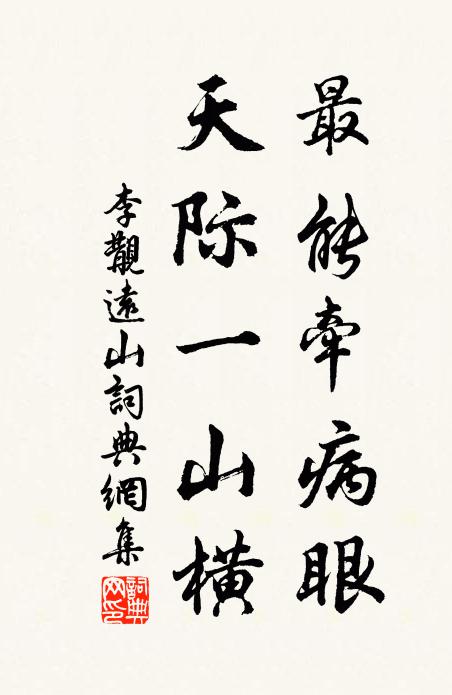 最能牵病眼
天际一山横
李觏远山詞典網集
詞典网印